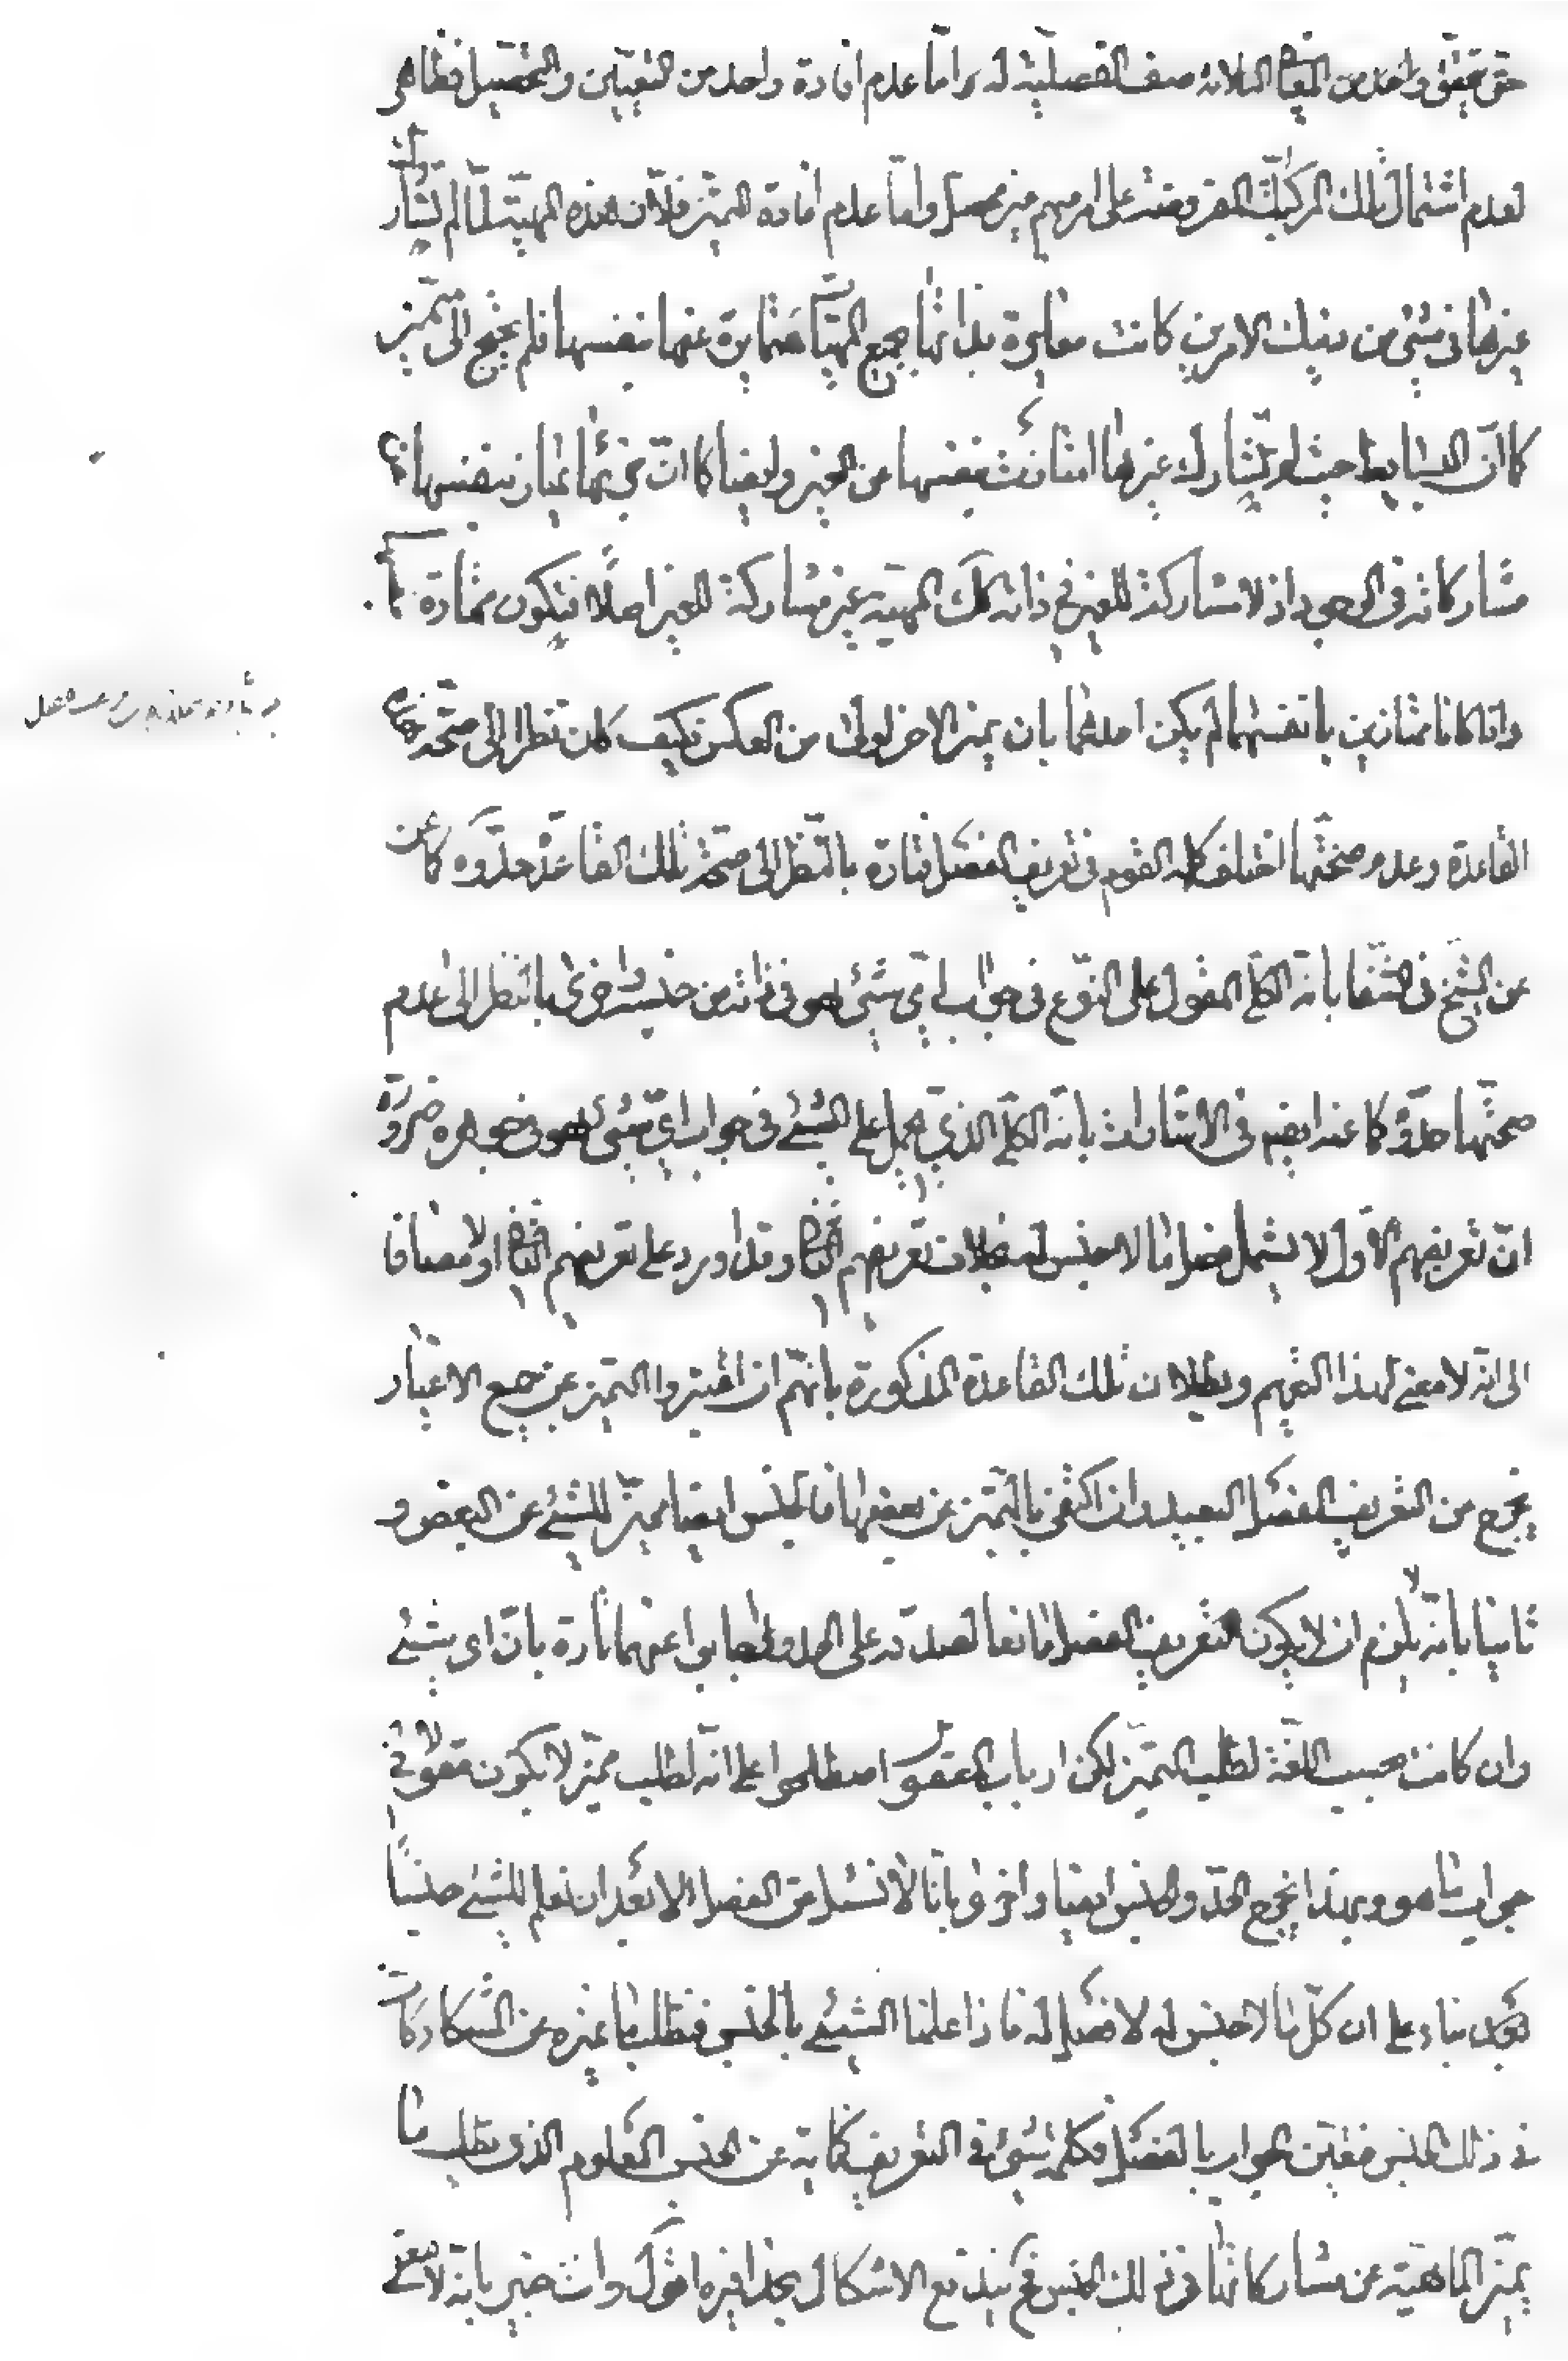 حتى يتحقق واحد من المعاني الثلاثة صفة الفصلية له واما عدم افادة واحد من التعيين والتحصيل فظاهر
لعدم اشتمال تلك المركبات المفروضة على امر مبهم غير محصل واما عدم افادة التميز فلان هذه المهية لما لم تشارك
غيرها في شيء من ذينك الامرين كانت مغايرة بذاتها جميع المهيات متمايزة عنها بنفسها فلم يحتج الى متميز
كما ان البسايط حيث لم تشارك غيرها امتازت بنفسها عن الغير وايضا كما ان جزئها يمتاز بنفسها
مشاركاته في الوجود اذ لا مشاركة للغير في ذاته كك المهية غير مشاركة للغير اصلا فتكون ممتازة
واذا كانا ممتازين بانفسهما لم يكن احدهما بان يميز الاخر اولى من العكس فكيف كان نظرا الى صحة هذه
القاعدة وعدم صحتها اختلف كلمة القوم في تعريف الفصل فتارة بالنظر الى صحة تلك القاعدة حدوه كما عن
عن الشيخ في الشفا بانه الكلي المقول على النوع في جواب اي شيء هو في ذاته من جنسه واخرى بالنظر الى عدم
صحتها حدوه كما عنه ايضا في الاشارات بانه الكلي الذي يحمل على الشيء في جواب اي شيء هو في جوهره ضرورة
ان تعريفهم الاول لا يشمل فصل ما لا جنس له بخلاف تعريفهم الثاني وقد اورد على تعريفهم الثاني اولا مضافا
الى انه لا معنى لهذا التعميم وبطلان تلك القاعدة المذكورة بانهم ان اعتبروا التميز عن جميع الاغيار
يخرج من التعريف الفصل البعيد وان اكتفى بالتميز عن بعضها فالجنس ايضا مميز للشيء عن البعض و
ثانيا بانه يلزم ان لا يكون التعريف الفصل مانعا لصدقه على الحد واجابوا عنهما تارة بان اي شيء
وان كانت بحسب اللغة لطلب التميز لكن ارباب المعقول اصطلحوا على انه لطلب مميز لا يكون مقولا في
جواب ما هو وبهذا يخرج الحد والجنس ايضا واخرى بانا لا نسئل عن الفصل الا بعد ان نعلم للشيء جنسا
بناء على ان كل ما لا جنس له لا فصل له فاذا علمنا الشيء بالجنس فنطلب ما يميزه عن المشاركات
في ذلك الجنس فتعين الجواب بالفصل فكلمة شيء في التعريف كناية عن الجنس المعلوم الذي يطلب ما
يميز الماهية عن مشاركاتها في ذلك الجنس فح يندفع الاشكال بحذافيره اقول وانت خبير بانه لا معنى